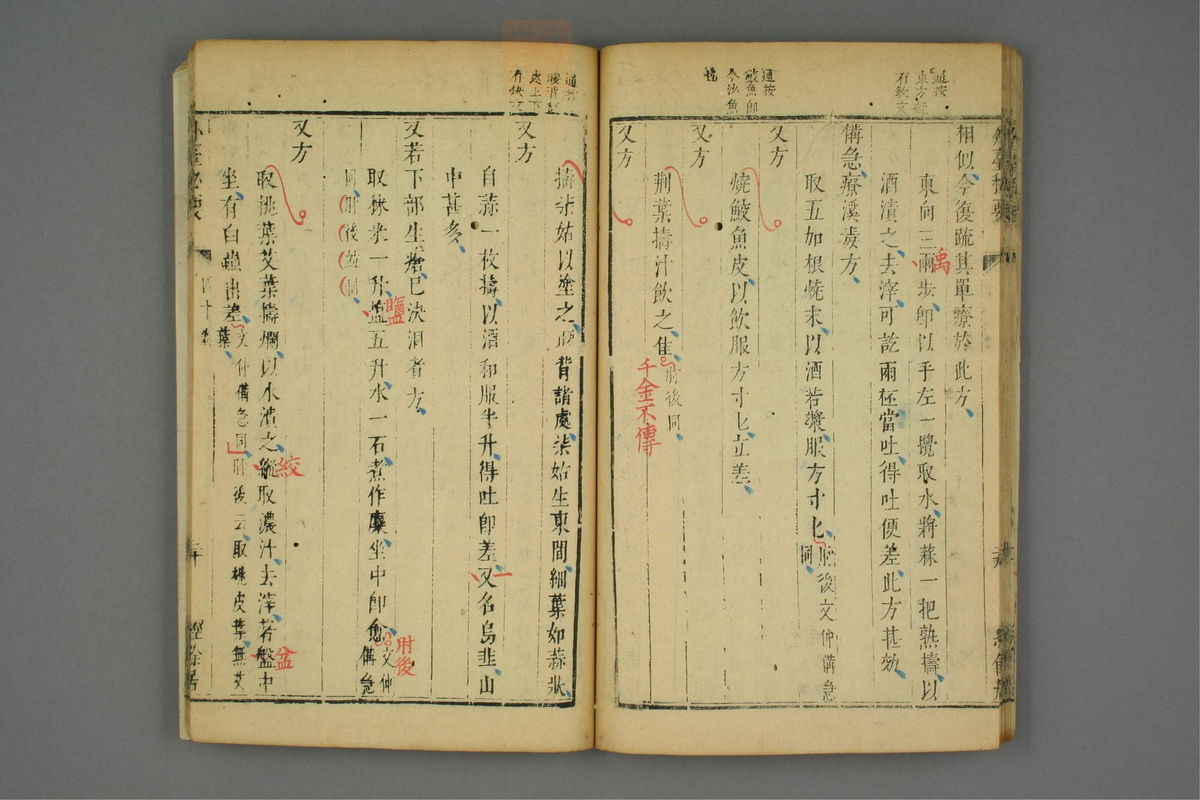 通按
東方
有欽文
通按
鮫魚即
今沙魚
相似今復疏其單療於此方
東向三兩步即以手左一攪取水將蒜一把熟擣以
禹
酒漬之去滓可訖兩杯當吐得吐便差此方甚効
備急療溪毒方
取五加根燒末以酒若漿服方寸匕肘後文仲備急
同
又方
燒鮫魚皮以飲服方寸匕立差
又方
荆葉擣汁飲之佳肘後同
千金不傳
又方
通按
處上下
有缺文
擣柒姑以塗之腹背諸處柒姑生東間細葉如蒜狀
又方
自蒜一枚擣以酒和服半升得吐即差又名烏韭山
一
中甚多
又若下部生瘡已決洞者方
取秫米一升盬五升水一石煮作糜坐中即愈文仲備急
鹽
肘後
同肘後並同
又方
取桃葉艾葉擣爛以水漬之縦取濃汁去滓若盤中
絞
盆
坐有白蟲出差文仲備急同肘後云取桃皮葉無艾
葉
外臺秘要
四十卷
經餘居